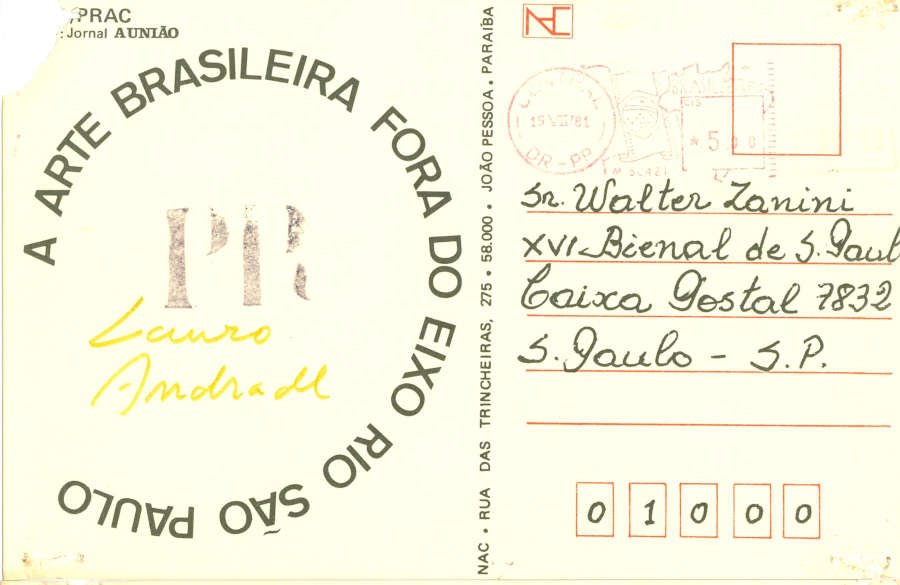 ,PRAC
: Jornal A UNIÃO
A ARTE BRASILEIRA FORA DO EIXO RIO SÃO PAULO
PR
Lauro
Andrade
NAC • RUA DAS TRINCHEIRAS, 275 • 58.000 • JOÃO PESSOA • PARAÍBA
CENTRAL
15 VII 81
DR-PB
5,00
Sr. Walter Zanini
XVI-Bienal de S. Paul
Caixa Postal 7832
S. Paulo - S.P.
0 1 0 0 0